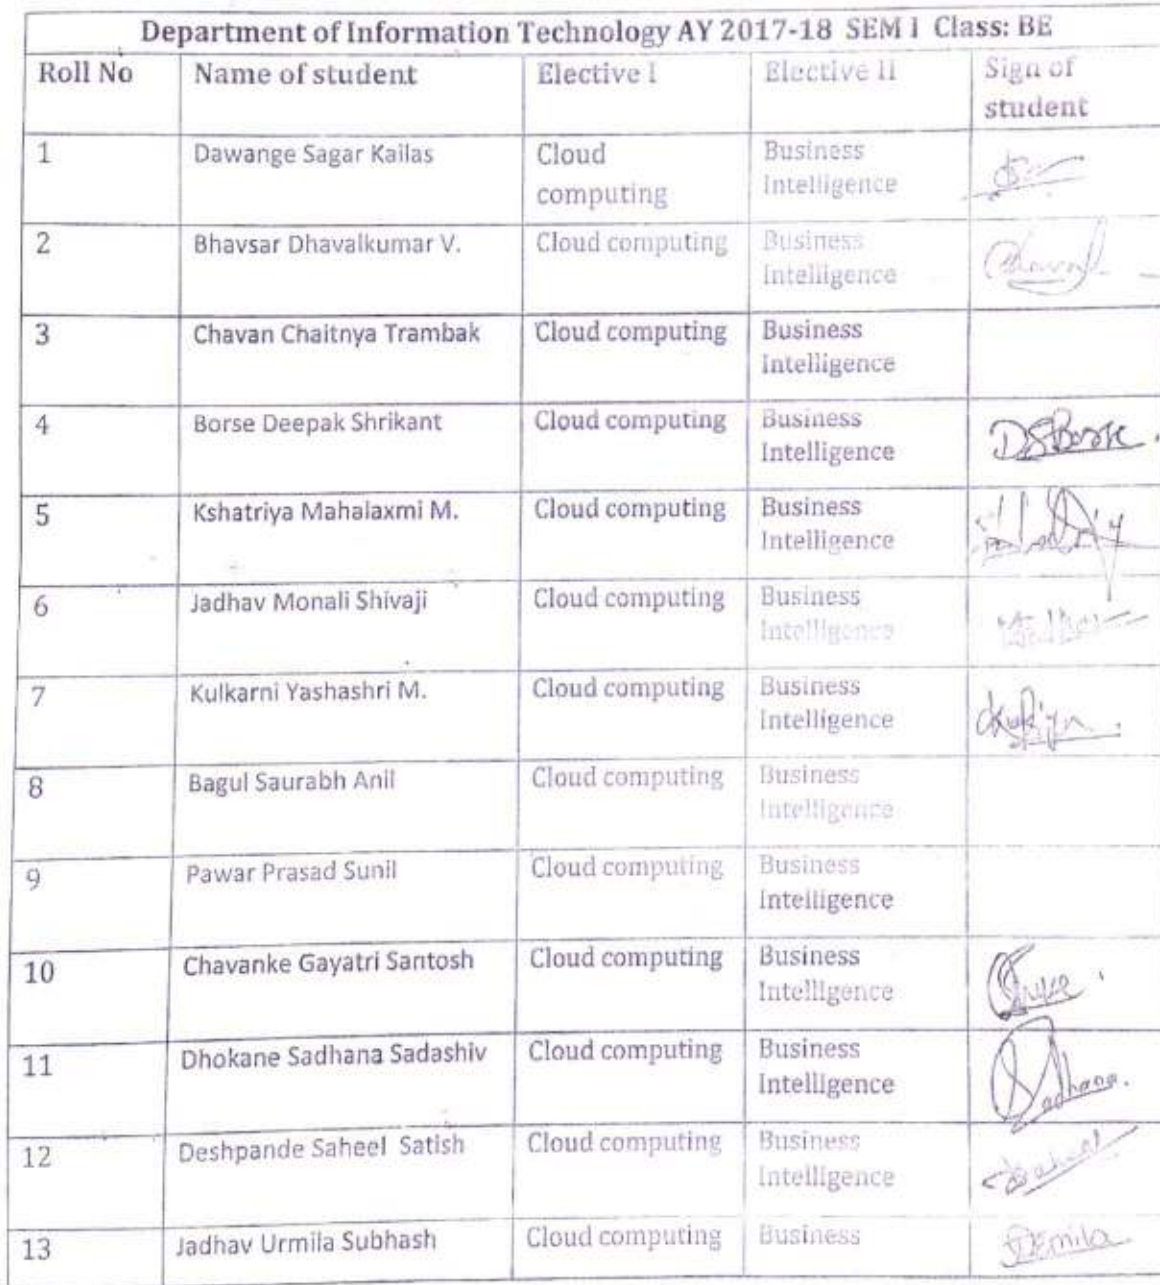 Department of Information Technology AY 2017-18 SEM I Class: BE
Roll No Name of student Elective I Elective II Sign of
student
1 Dawange Sagar Kailas Cloud Business
computing Intelligence
2 Bhavsar Dhavalkumar V. Cloud computing Business
Intelligence
3 Chavan Chaitnya Trambak Cloud computing Business
Intelligence
4 Borse Deepak Shrikant Cloud computing Business DSBorse
Intelligence
5 Kshatriya Mahalaxmi M. Cloud computing Business
Intelligence
6 Jadhav Monali Shivaji Cloud computing Business
Intelligence
7 Kulkarni Yashashri M. Cloud computing Business
Intelligence
8 Bagul Saurabh Anil Cloud computing Business
Intelligence
9 Pawar Prasad Sunil Cloud computing Business
Intelligence
10 Chavanke Gayatri Santosh Cloud computing Business
Intelligence
11 Dhokane Sadhana Sadashiv Cloud computing Business
Intelligence Sadhana.
12 Deshpande Saheel Satish Cloud computing Business
Intelligence
13 Jadhav Urmila Subhash Cloud computing Business